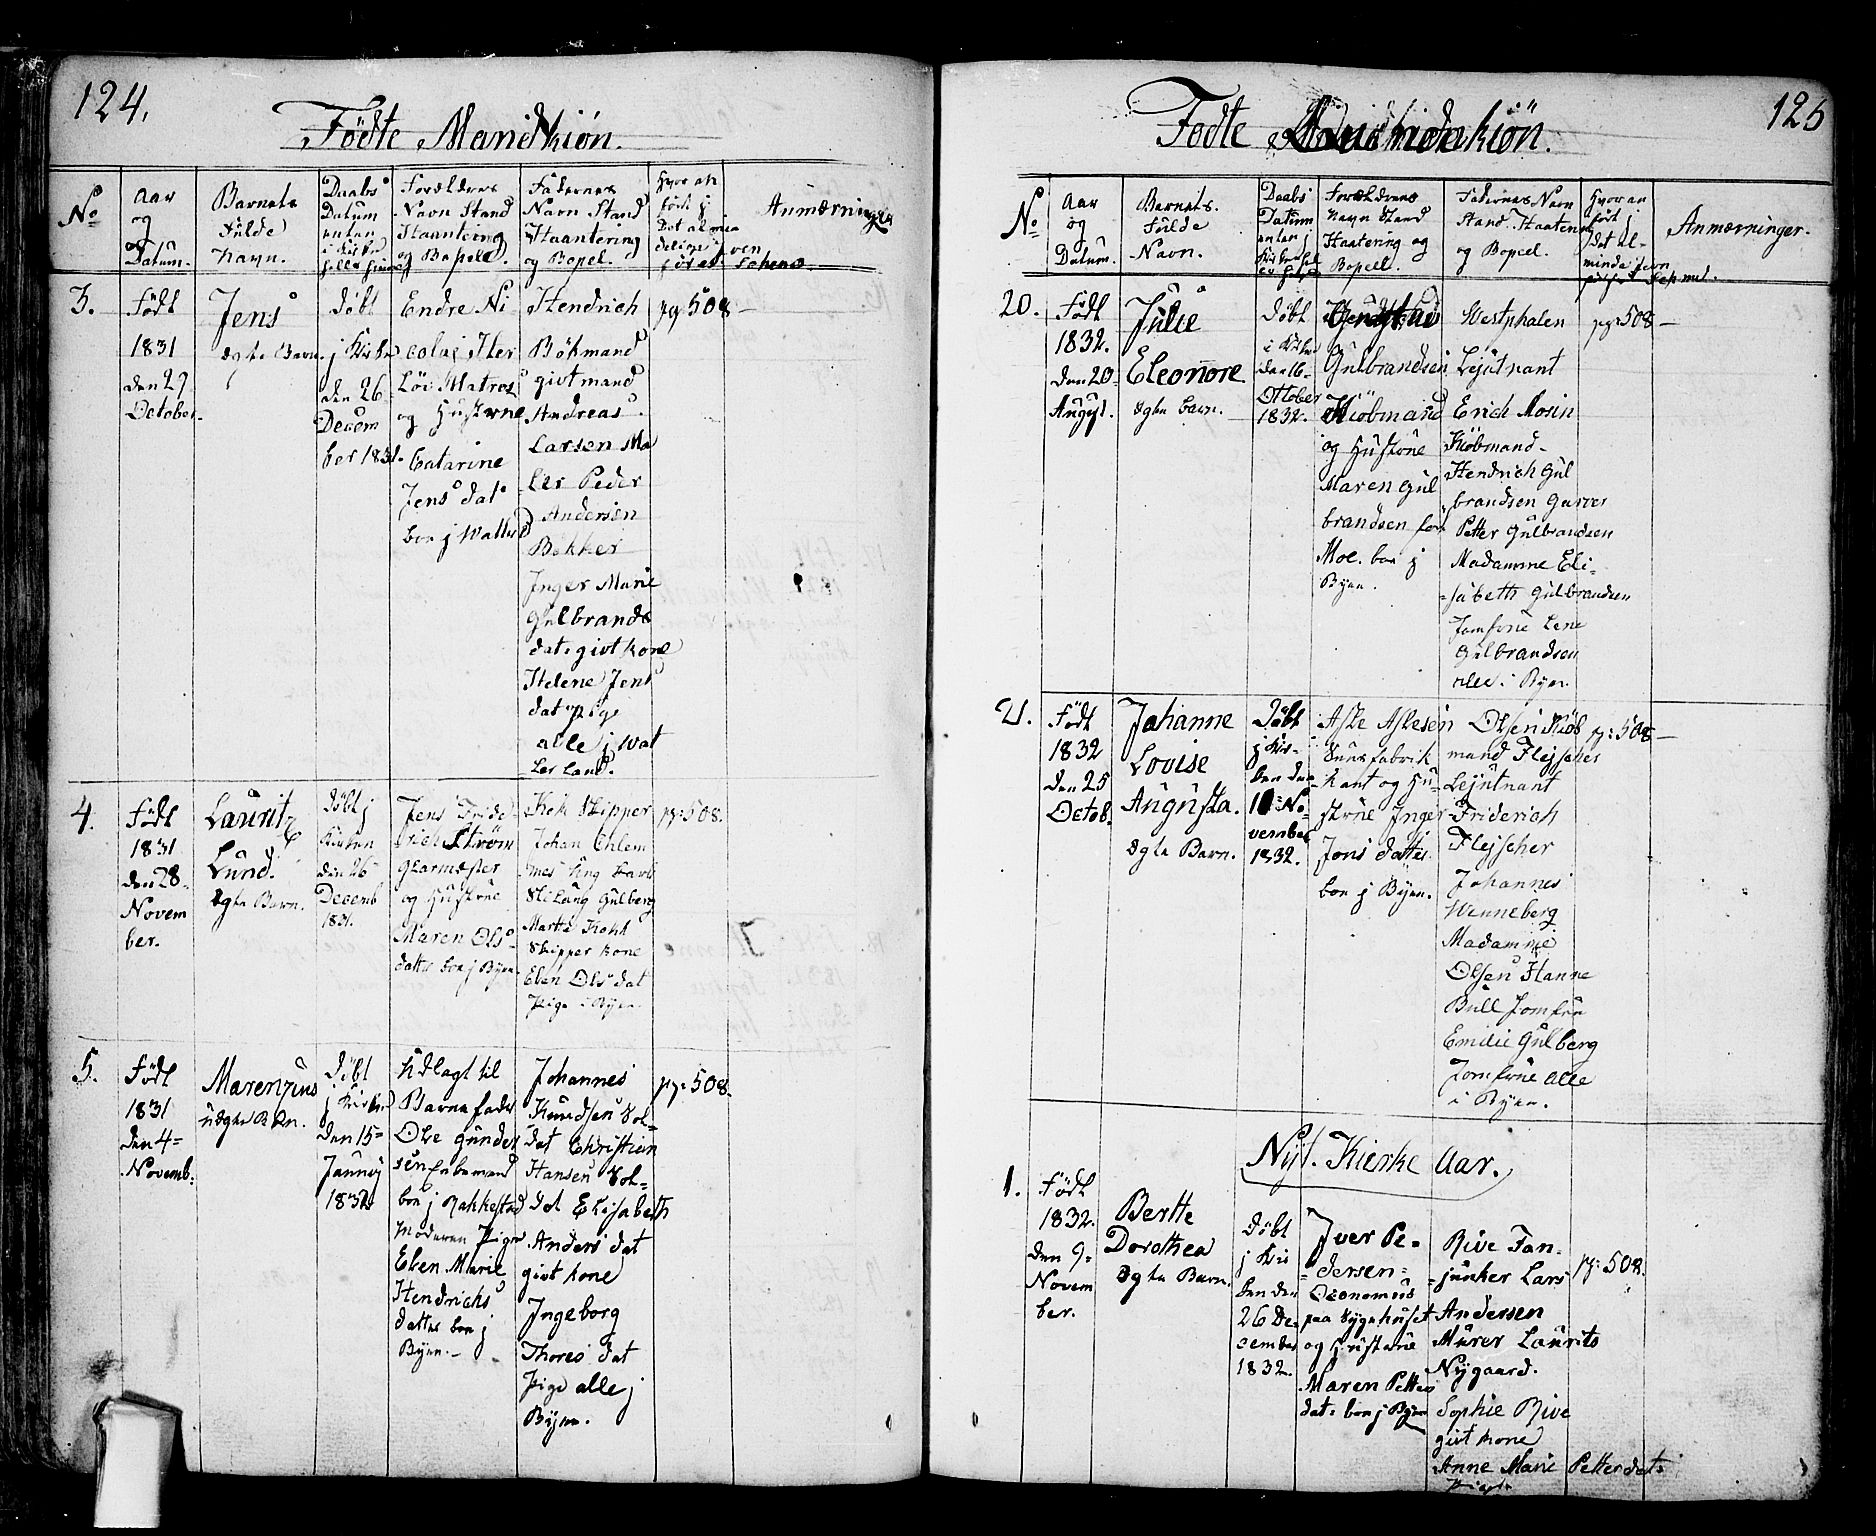 124.
Födte Mandkiön.
No
Aar
og
Datum.
Barnets
Fulde
Navn.
Daabs
Datum
enten
i Kirken
eller hiemme
Forældrenes
Navn Stand
Haantering
og Bopæl.
Fadernes
Navn Stand
Haantering
og Bopel.
Hvor an
fört j
Det almin
delige
Anmærninger
3.
Födt
1831
den 29
October.
Jens
ægte Barn.
Döbt
j Kirken
den 26
Decem
ber 1831.
Endre Ni
colai
Löv Matros
og Hustrue
Catarine
Jens dat
boe j Walle
Hendrich
Bökmand
givtmand
Andreas
Larsen Ma
ler Peder
Andersen
Bekker
Inger Marie
Gulbrands
dat. givt kone
Helene Jens
dat Pige
alle j Wal
ler land.
pg 508
4.
Födt
1831
den 28
Novem
ber.
Lauritz
Lund.
ægte Barn.
Döbt j
Kirken
den 26
Decemb
1831.
Jens Fride
rich Ström
Glarmester
og Hustrue
Maren Ols
datter boe j Byen
Kok Skipper
Johan Ehlem
Gulberg
Marthe Kokk
Skipper kone
Elen Ols dat
Pige i Byen
pg: 508.
5.
Födt
1831
den 4
Novemb:
Marenzius
uægte Barn.
Döbt
j Kirken
den 15
Januaj
1832
Udlagt til
Barne fader
Ole Gunder
sen Enkemand
boe j Rakkestad
Moderen Pige
Elen Marie
Hendrichs
datter boe j
Byen.
Johannes
Knudsen Sol=
dat Christian
Hansen Sol=
dat Elisabeth
Anders dat
givt kone
Ingeborg
Thores dat
Pige alle j
Byen.
pg: 508.
125
Födte Qvindekiön.
No
Aar
og
Datum.
Barnets
Fulde
Navn.
Daabs
Datum
enten j
Forældrenes
Navn Stand
Haatering og
Bopæl.
Fadernes Navn
Stand Haatering
og Bopæl.
Hvor an
fört j
det al-
minde
Anmærninger.
20.
Födt
1832.
den 20
August.
Julie
Eleonore
ægte barn.
Döbt
i Kirken
den 16
October
1832.
Gulbrandsen
Kiöbmand
og Hustrue
Maren Gul
brandsen föd
Moe. boe j
Byen.
Westphalen
Lejutnant
Erich Mosin
Kiöbmand
Hendrich Gul
brandsen Garver
Petter Gulbrandsen
Madamme Eli=
sabeth Gulbrandsen
Jomfrue Lene
Gulbrandsen
alle i Byen.
pg: 508
21.
Födt
1832
den 25
Octob.
Johanne
Lovise
Augusta.
ægte Barn.
Döbt
j Kir-
ken den
No
vember
1832.
Aslesen
fabrik
kant og Hu=
strue Inger
Jens datter
boe j Byen.
Olsen Kiöb
mand Flejscher
Lejutnant
Friderich
Flejscher
Johannes
Wenneberg
Madamme
Olsen Hanne
Bull Jomfru
Emilie Gulberg
Jomfrue alle
i Byen.
pg: 508
Nyt. Kierke Aar.
1.
Födt
1832.
den 9
Novem
ber.
Berthe
Dorothea
ægte Barn.
Döbt
j Kir
ken den
26 De-
cember
1832.
Iver Pe=
dersen
Oeconomus
paa Sygehuset
og Hustrue
Maren Petter
dat. boe j Byen
Rive Fan=
junker Lars
Andersen
Murer Laurits
Nygaard.
Sophie Rive
givt kone
Anne Marie Petterdat:
Pige
pg: 508.